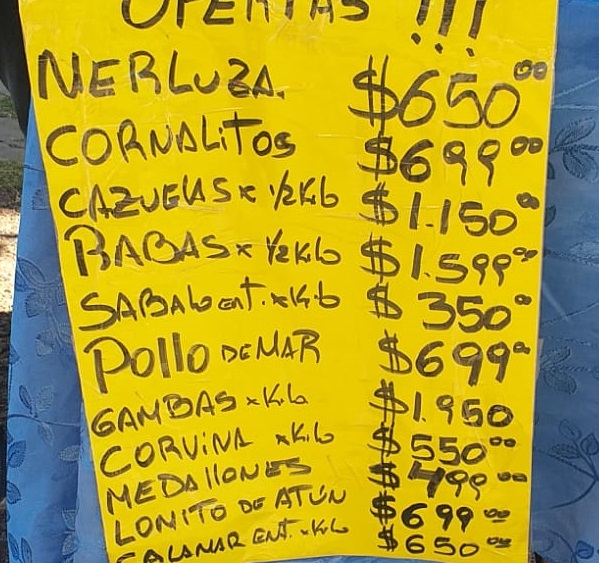 OFERTAS !!!
MERLUZA. $650⁰⁰
CORNALITOS $699⁰⁰
CAZUELAS x 1/2 Kilo $1.150⁰⁰
RABAS x 1/2 Kilo $1.599⁰⁰
SABALO ENT. x Kilo $350⁰⁰
POLLO DE MAR $699⁰⁰
GAMBAS x Kilo $1.950
CORVINA x Kilo $550⁰⁰
MEDALLONES $499⁰⁰
LOMITO DE ATÚN $699⁰⁰
CALAMAR ENT. x Kilo $650⁰⁰